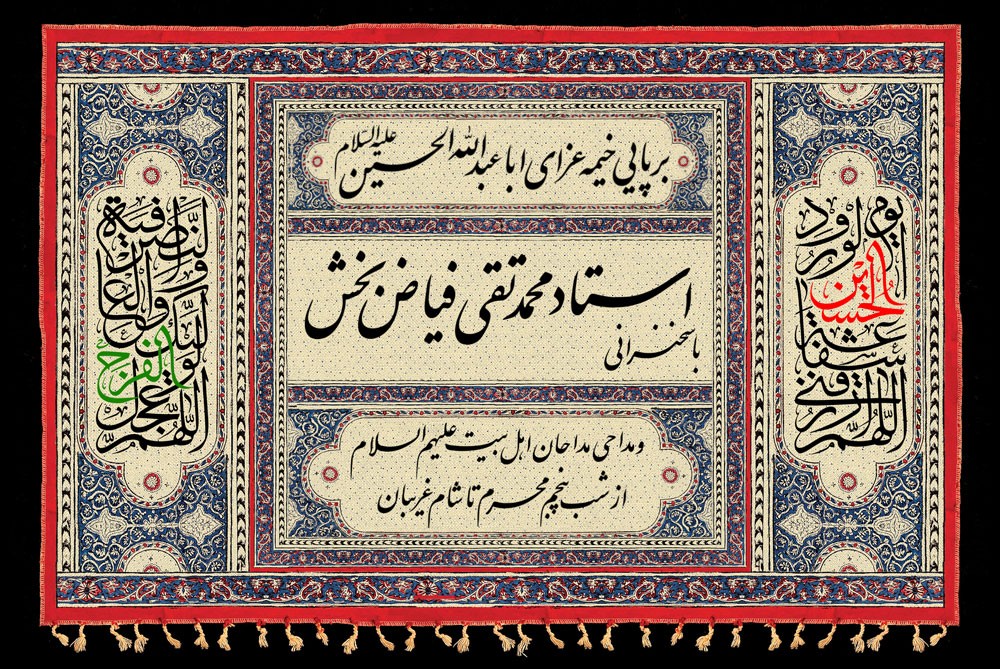 برپایی خیمه عزای اباعبدالله الحسین علیه السلام
استاد محمدتقی فیاض بخش
باسخنرانی
ومداحی مداحان اهل بیت علیهم السلام
از شب پنجم محرم تا شام غریبان
اللهم ارزقنی
شفاعة
الحسین
یوم الورود
اللهم عجل
لولیک الفرج
والعافیة
والنصر